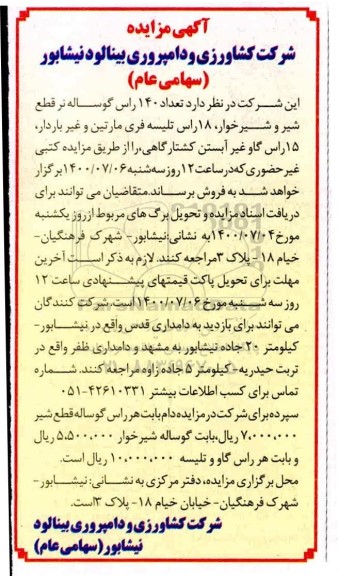 آگهی مزایده
شرکت کشاورزی و دامپروری بینالود نیشابور
(سهامی عام)
این شرکت در نظر دارد تعداد ۱۴۰ راس گوساله نر قطع
شیر و شیرخوار، ۱۸راس تلیسه فری مارتین و غیر باردار،
۱۵راس گاو غیر آبستن کشتارگاهی، را از طریق مزایده کتبی
غیر حضوری که در ساعت ۱۲ روز سه شنبه ۱۴۰۰/۰۷/۰۶ برگزار
خواهد شد به فروش برساند. متقاضیان می توانند برای
دریافت اسناد مزایده و تحویل برگ های مربوط از روز یکشنبه
مورخ ۱۴۰۰/۰۷/۰۴ به نشانی: نیشابور- شهرک فرهنگیان-
خیام ۱۸ - پلاک ۳ مراجعه کنند. لازم به ذکر است آخرین
مهلت برای تحویل پاکت قیمتهای پیشنهادی ساعت ۱۲
روز سه شنبه مورخ ۱۴۰۰/۰۷/۰۶ است. شرکت کنندگان
می توانند برای بازدید به دامداری قدس واقع در نیشابور-
کیلومتر ۲۰ جاده نیشابور به مشهد و دامداری ظفر واقع در
تربت حیدریه - کیلومتر ۵ جاده زاوه مراجعه کنند. شماره
تماس برای کسب اطلاعات بیشتر ۴۲۶۱۰۳۳۱-۰۵۱
سپرده برای شرکت در مزایده دام بابت هر راس گوساله قطع شیر
۷,۰۰۰,۰۰۰ ریال، بابت گوساله شیرخوار ۵,۵۰۰,۰۰۰ ریال
و بابت هر راس گاو و تلیسه ۱۰,۰۰۰,۰۰۰ ریال است.
محل برگزاری مزایده، دفتر مرکزی به نشانی: نیشابور-
شهرک فرهنگیان- خیابان خیام ۱۸- پلاک ۳ است.
شرکت کشاورزی و دامپروری بینالود
نیشابور (سهامی عام)